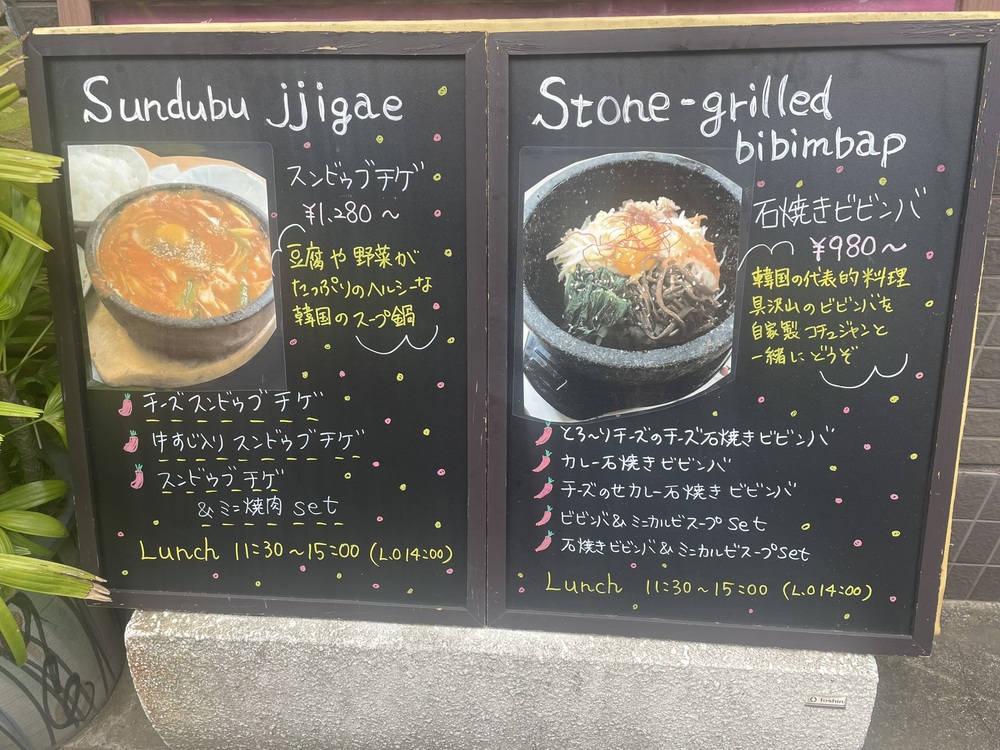 Sundubu jjigae
スンドゥブチゲ
¥1,280〜
豆腐や野菜が
たっぷりのヘルシーな
韓国のスープ鍋
チーズスンドゥブチゲ
牛すじ入りスンドゥブチゲ
スンドゥブチゲ
&ミニ焼肉set
Lunch 11:30〜15:00 (L.O14:00)
Stone-grilled
bibimbap
石焼きビビンバ
¥980〜
韓国の代表的料理
具沢山のビビンバを
自家製コチュジャンと
一緒にどうぞ
とろ〜りチーズのチーズ石焼きビビンバ
カレー石焼きビビンバ
チーズのせカレー石焼きビビンバ
ビビンバ&ミニカルビスープset
石焼きビビンバ&ミニカルビスープset
Lunch 11:30〜15:00 (L.O14:00)
toshin